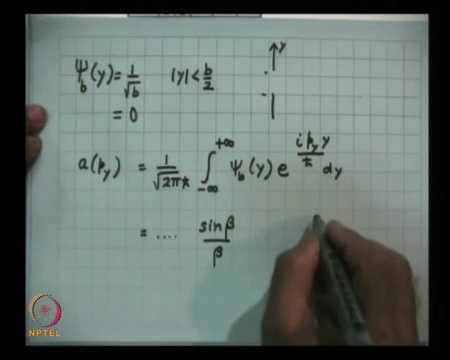 ψ_b(y) = 1/√b |y| < b/2
= 0
y
a(p_y) = 1/√(2πħ) ∫_{-∞}^{+∞} ψ_b(y) e^{i p_y y/ħ} dy
= .... sinβ/β
NPTEL